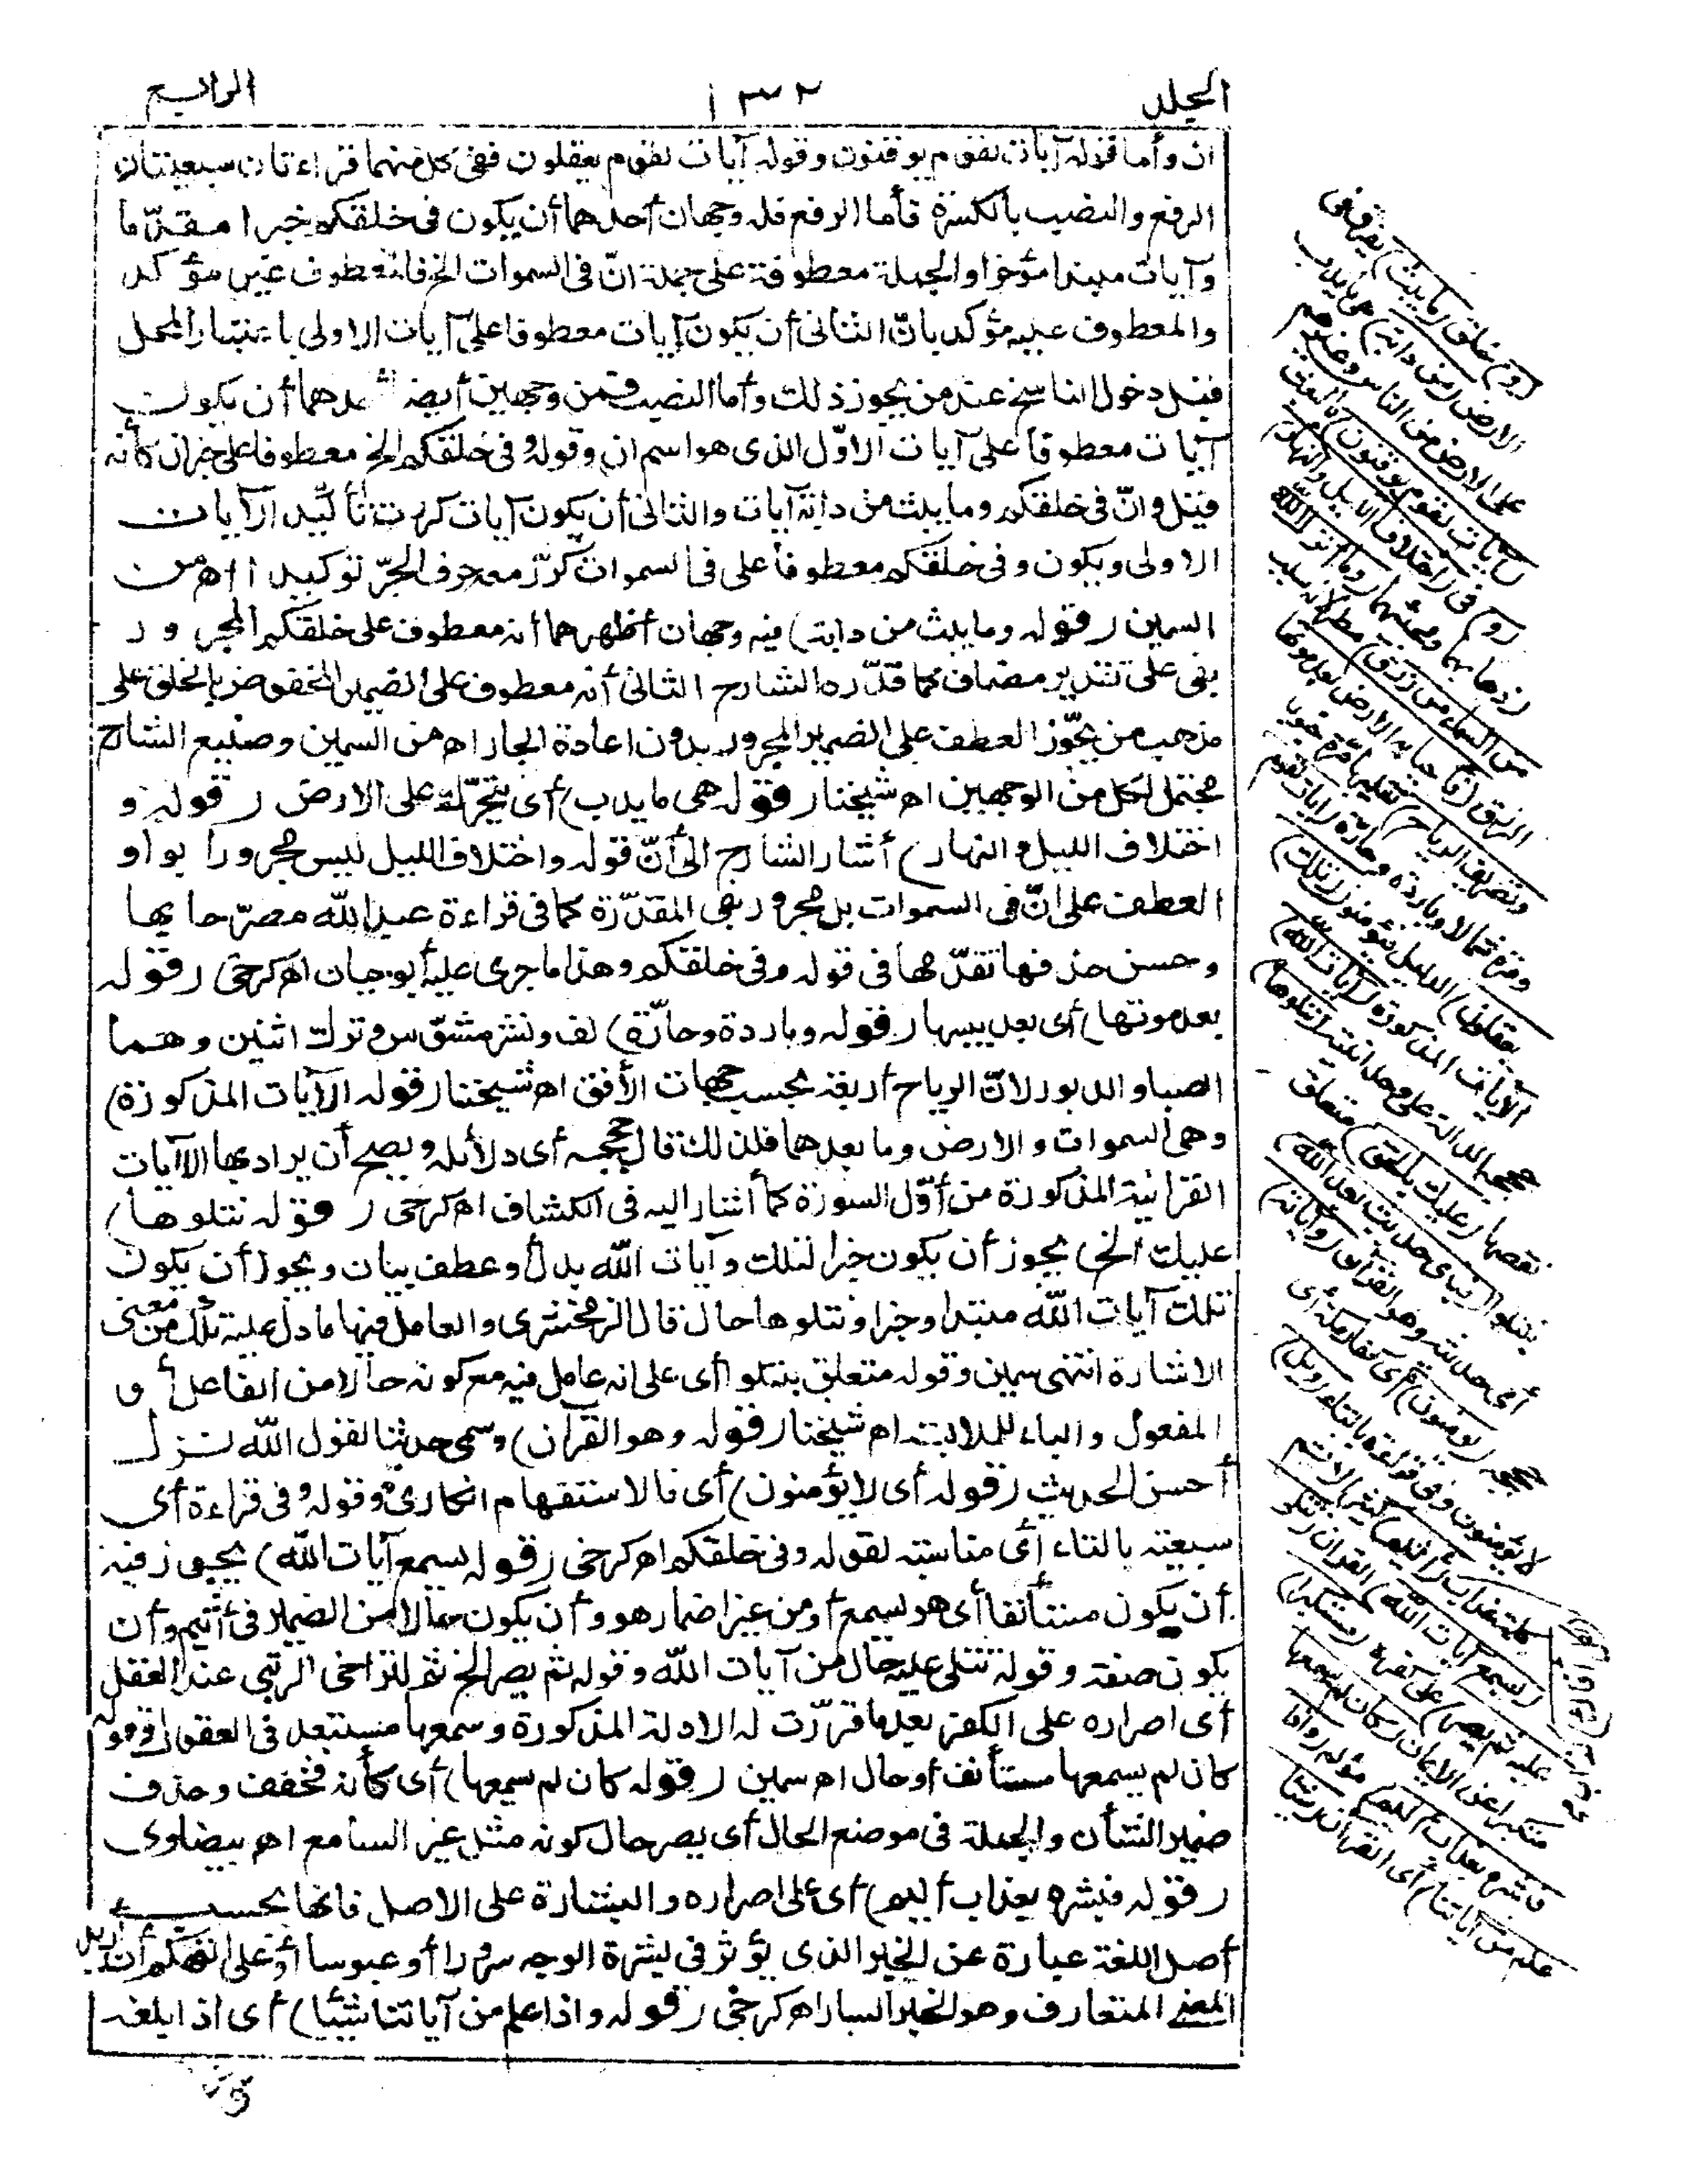 المجلد
١٣٢
الرابع
ان وأما قوله آيات لقوم يوقنون وقوله آيات لقوم يعقلون ففي كل منهما قراءتان سبعيتان
الرفع والنصب بالكسرة فأما الرفع فله وجهان أحدهما أن يكون في خلقكم خبرا مقدّما
وآيات مبتدا مؤخرا والجملة معطوفة على جملة انّ في السموات الخ فالمعطوف غير مؤكد
والمعطوف عليه مؤكد بانّ الثاني أن يكون آيات معطوفا على آيات الاولى باعتبار المحل
قبل دخول الناسخ عند من يجوز ذلك وأما النصب فمن وجهين أيضا أحدهما أن يكون
آيات معطوفا على آيات الاوّل الذي هو اسم ان وقوله وفي خلقكم الخ معطوفا على خبر ان كأنه
قيل وانّ في خلقكم وما يبث من دابة آيات والثاني أن يكون آيات كررت تأكيد الآيات
الاولى ويكون وفي خلقكم معطوفا على في السموات كرّر معه حرف الجرّ توكيدا اه من
السمين (قوله وما يبث من دابة) فيه وجهان أظهرهما أنه معطوف على خلقكم المجرور
بفي على تقدير مضاف كما قدّره الشارح الثاني أنه معطوف على الضمير المخفوض بالخلق على
مذهب من يجّوز العطف على الضمير المجرور بدون اعادة الجار اه من السمين وصنيع الشارح
محتمل لكل من الوجهين اه شيخنا (قوله هي ما يدب) أي يتحرّك على الارض (قوله و
اختلاف الليل والنهار) أشار الشارح الى أنّ قوله واختلاف الليل ليس مجرورا بواو
العطف على انّ في السموات بل مجرور بفي المقدّرة كما في قراءة عبد الله مصرّحا بها
وحسن حذفها تقدّمها في قوله وفي خلقكم وهذا ما جرى عليه أبو حيان اه كرخي (قوله
بعد موتها) أي بعد يبسها (قوله وباردة وحارّة) لف ونشر مشوّش وترك اثنين وهما
الصبا والدبور لانّ الرياح أربعة بحسب جهات الأفق اه شيخنا (قوله الآيات المذكورة)
وهي السموات والارض وما بعدهما فلذلك قال حججه أي دلائله ويصح أن يراد بها الآيات
القرآنية المذكورة من أوّل السورة كما أشار اليه في الكشاف اه كرخي (قوله نتلوها)
عليك الخ) يجوز أن يكون خبرا لتلك وآيات الله بدل أو عطف بيان ويجوز أن يكون
تلك آيات الله مبتدا وخبرا ونتلوها حال قال الزمخشري والعامل فيها ما دل عليه تلك من معنى
الاشارة انتهى سمين وقوله متعلق بنتلو أي على انه عامل فيه مع كونه حالا من الفاعل أو
المفعول والباء للملابسة اه شيخنا (قوله وهو القرآن) وسمي حديثا لقول الله نزل
أحسن الحديث (قوله أي لا يؤمنون) أي فالاستفهام انكاري وقوله وفي قراءة أي
سبعية بالتاء أي مناسبة لقوله وفي خلقكم اه كرخي (قوله يسمع آيات الله) يجوز فيه
أن يكون مستأنفا أي هو يسمع أو من غير اضمار هو وأن يكون حالا من الضمير في أثيم وأن
يكون صفة وقوله تتلى عليه حال من آيات الله وقوله ثم يصر الخ ثم للتراخي الرتبي عند العقل
أي اصراره على الكفر بعد ما قرّرت له الادلة المذكورة وسمعها مستبعد في العقول وقوله
كان لم يسمعها مستأنف أو حال اه سمين (قوله كان لم يسمعها) أي كأنه فخفف وحذف
ضمير الشأن والجملة في موضع الحال أي يصر حال كونه مثل غير السامع اه بيضاوي
(قوله فبشره بعذاب أليم) أي على اصراره والبشارة على الاصل فانها بحسب
أصل اللغة عبارة عن الخبر الذي يؤثر في بشرة الوجه سرورا أو عبوسا أو على التهكم أن أريد
المعنى المتعارف وهو الخبر السار اه كرخي (قوله واذا علم من آياتنا شيئا) أي اذا بلغه
(و) في خلق (ما يبث) يفرق في
الارض (من دابة) هي ما يدب
على الارض من الناس وغيرهم
(آيات لقوم يوقنون) بالبعث
(و) في (اختلاف الليل والنهار)
ذهابهما ومجيئهما (وما أنزل الله
من السماء من رزق) مطر لانه سبب
الرزق (فأحيا به الارض بعد موتها
وتصريف الرياح) تقليبها مرّة جنوبا
ومرة شمالا وباردة وحارّة (آيات لقوم
يعقلون) الدليل فيؤمنون (تلك)
الآيات المذكورة (آيات الله)
حججه الدالة على وحدانيته (نتلوها)
نقصها (عليك بالحق) متعلق
بنتلو (فبأي حديث بعد الله)
أي حديثه وهو القرآن (وآياته)
حججه (يؤمنون) أي كفار مكة أي
لا يؤمنون وفي قراءة بالتاء (ويل)
كلمة عذاب (لكل أفاك) كذاب (أثيم) كثير الاثم
(يسمع آيات الله) القرآن (تتلى
عليه ثم يصر) على كفره (مستكبرا)
متكبرا عن الايمان (كان لم يسمعها
فبشره بعذاب أليم) مؤلم (واذا
علم من آياتنا) أي القرآن (شيئا